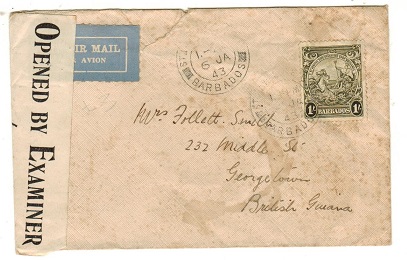 OPENED BY EXAMINER
AIR MAIL
AVION
6 JA
43
BARBADOS
1/- BARBADOS 1/-
BARBADOS
Mrs Follett-Smith
232 Middle St
Georgetown
British Guiana